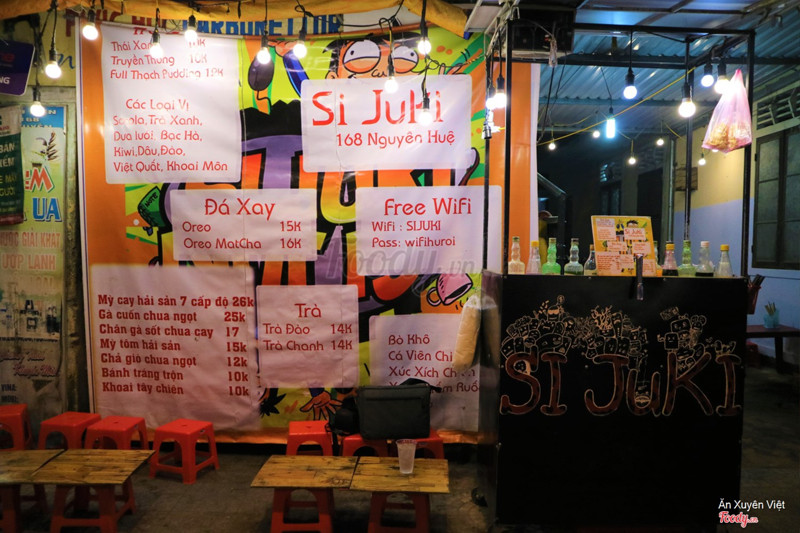 Thái Xanh
Truyền Thống 16K
Full Thạch Pudding 18K
Các Loại Vị
Socola, Trà Xanh,
Dưa Lưới, Bạc Hà,
Kiwi, Dâu, Đào,
Việt Quất, Khoai Môn
Si Juki
168 Nguyễn Huệ
Đá Xay
Oreo 15K
Oreo MatCha 16K
Free Wifi
Wifi : SIJUKI
Pass: wifihuroi
Mỳ cay hải sản 7 cấp độ 26k
Gà cuốn chua ngọt 25k
Chân gà sốt chua cay 17
Mỳ tôm hải sản 15k
Chả giò chua ngọt 12k
Bánh tráng trộn 10k
Khoai tây chiên 10k
Trà
Trà Đào 14K
Trà Chanh 14K
Bò Khô
Cá Viên
Xúc Xích
Ruốc
SI JUKI
SI JUKI
foody.vn
Ăn Xuyên Việt
Foody.vn